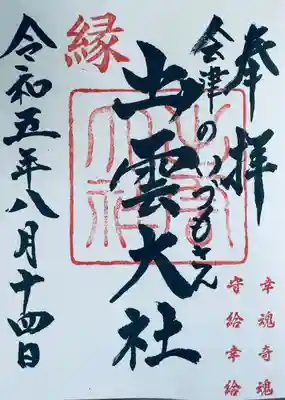 奉拝
会津のいづもさん
縁
出雲大社
令和五年八月十四日
幸魂奇魂
守給幸給